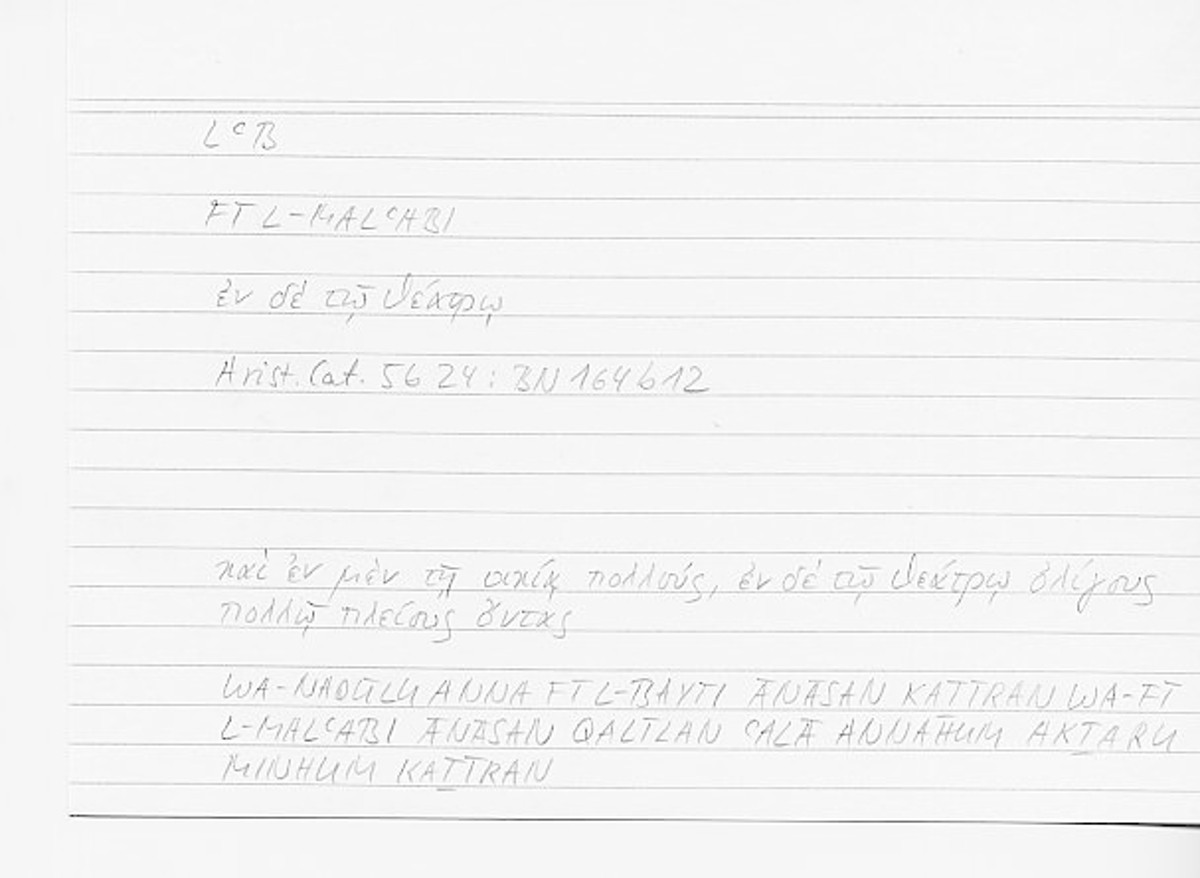 LᶜB
FĪ L-MALᶜABI
ἐν δὲ τῷ θεάτρῳ
Arist. Cat. 5b 24 : BN 164b12
καὶ ἐν μὲν τῇ οἰκίᾳ πολλούς, ἐν δὲ τῷ θεάτρῳ ὀλίγους
πολλῷ πλείους ὄντας
WA-NAQŪLU ANNA FĪ L-BAYTI ĀNĀSAN KAṮĪRAN WA-FĪ
L-MALᶜABI ĀNĀSAN QALĪLAN ᶜALĀ ANNAHUM AKṮARU
MINHUM KAṮĪRAN